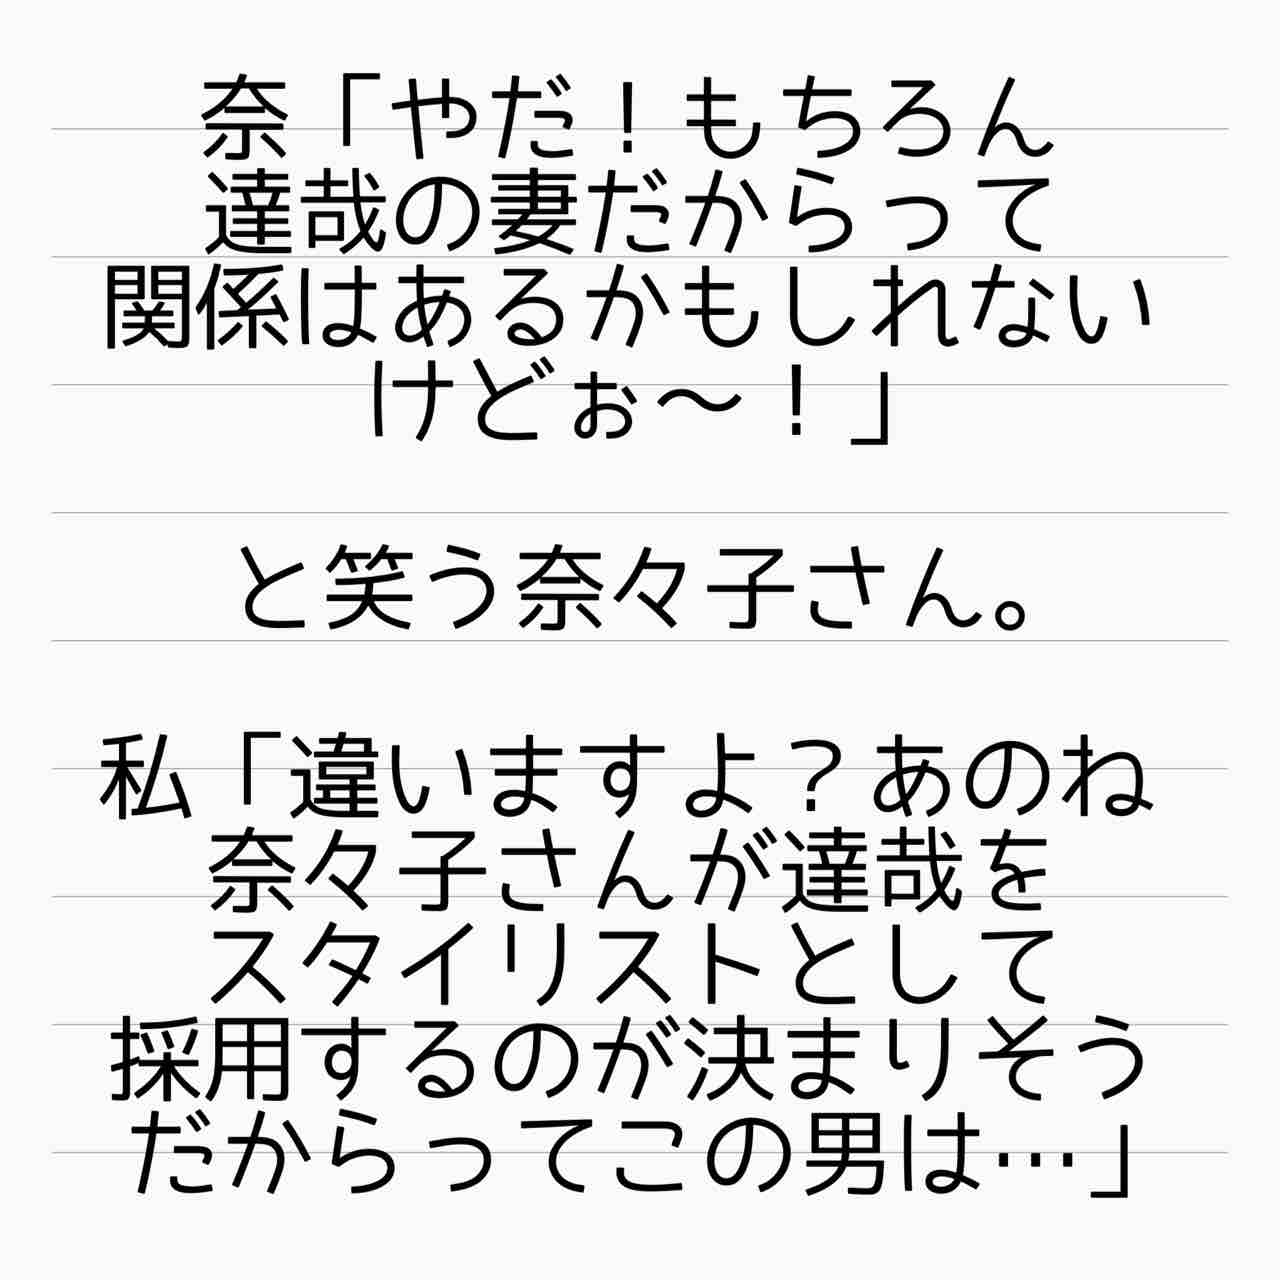 奈「やだ！もちろん
達哉の妻だからって
関係はあるかもしれない
けどぉ〜！」
と笑う奈々子さん。
私「違いますよ？あのね
奈々子さんが達哉を
スタイリストとして
採用するのが決まりそう
だからってこの男は…」